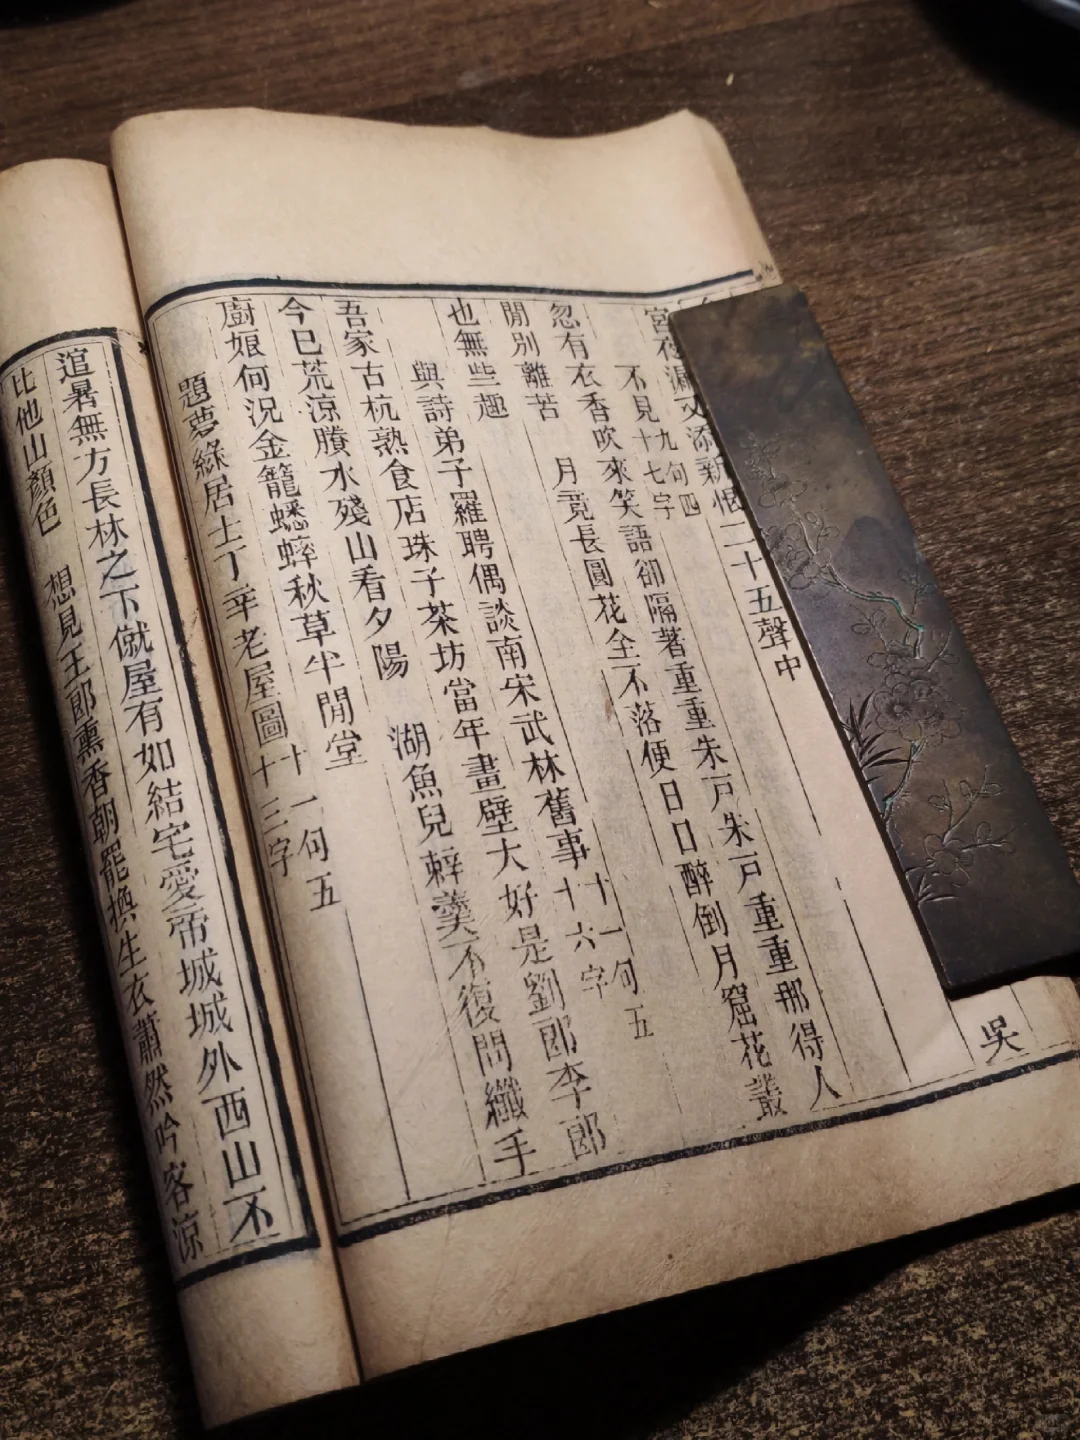 吳
漏又添新恨二十五聲中
不見九句四十七字
忽有衣香吹來笑語卻隔著重重朱戶朱戶重重那得人
閒別離苦　月竟長圓花全不落便日日醉倒月窟花叢
也無些趣
與詩弟子羅聘偶談南宋武林舊事十一句五十六字
吾家古杭熟食店珠子茶坊當年畫壁大好是劉郎李郎
今已荒涼賸水殘山看夕陽　湖魚兒辣羹不復問纖手
廚娘何況金籠蟋蟀秋草半閒堂
題夢綠居士丁辛老屋圖十一句五十三字
逭暑無方長林之下僦屋有如結宅愛帝城城外西山不
比他山顏色　想見王郎熏香朝罷換生衣蕭然吟客涼